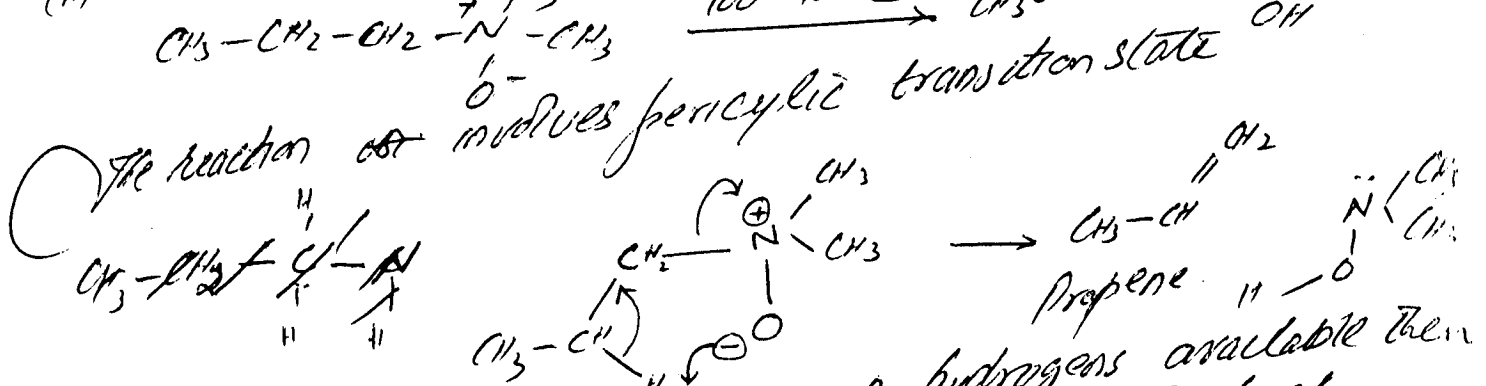 CH3-CH2-CH2-N-CH3
+
O-
CH3
OH
The reaction involves pericylic transition state
CH3-CH2-C-N
H
H
H
CH2-N
⊕
CH3
CH3
CH3-CH
O
⊖
H
CH2
CH3-CH
Propene
N
CH3
CH3
H-O
hydrogens available then